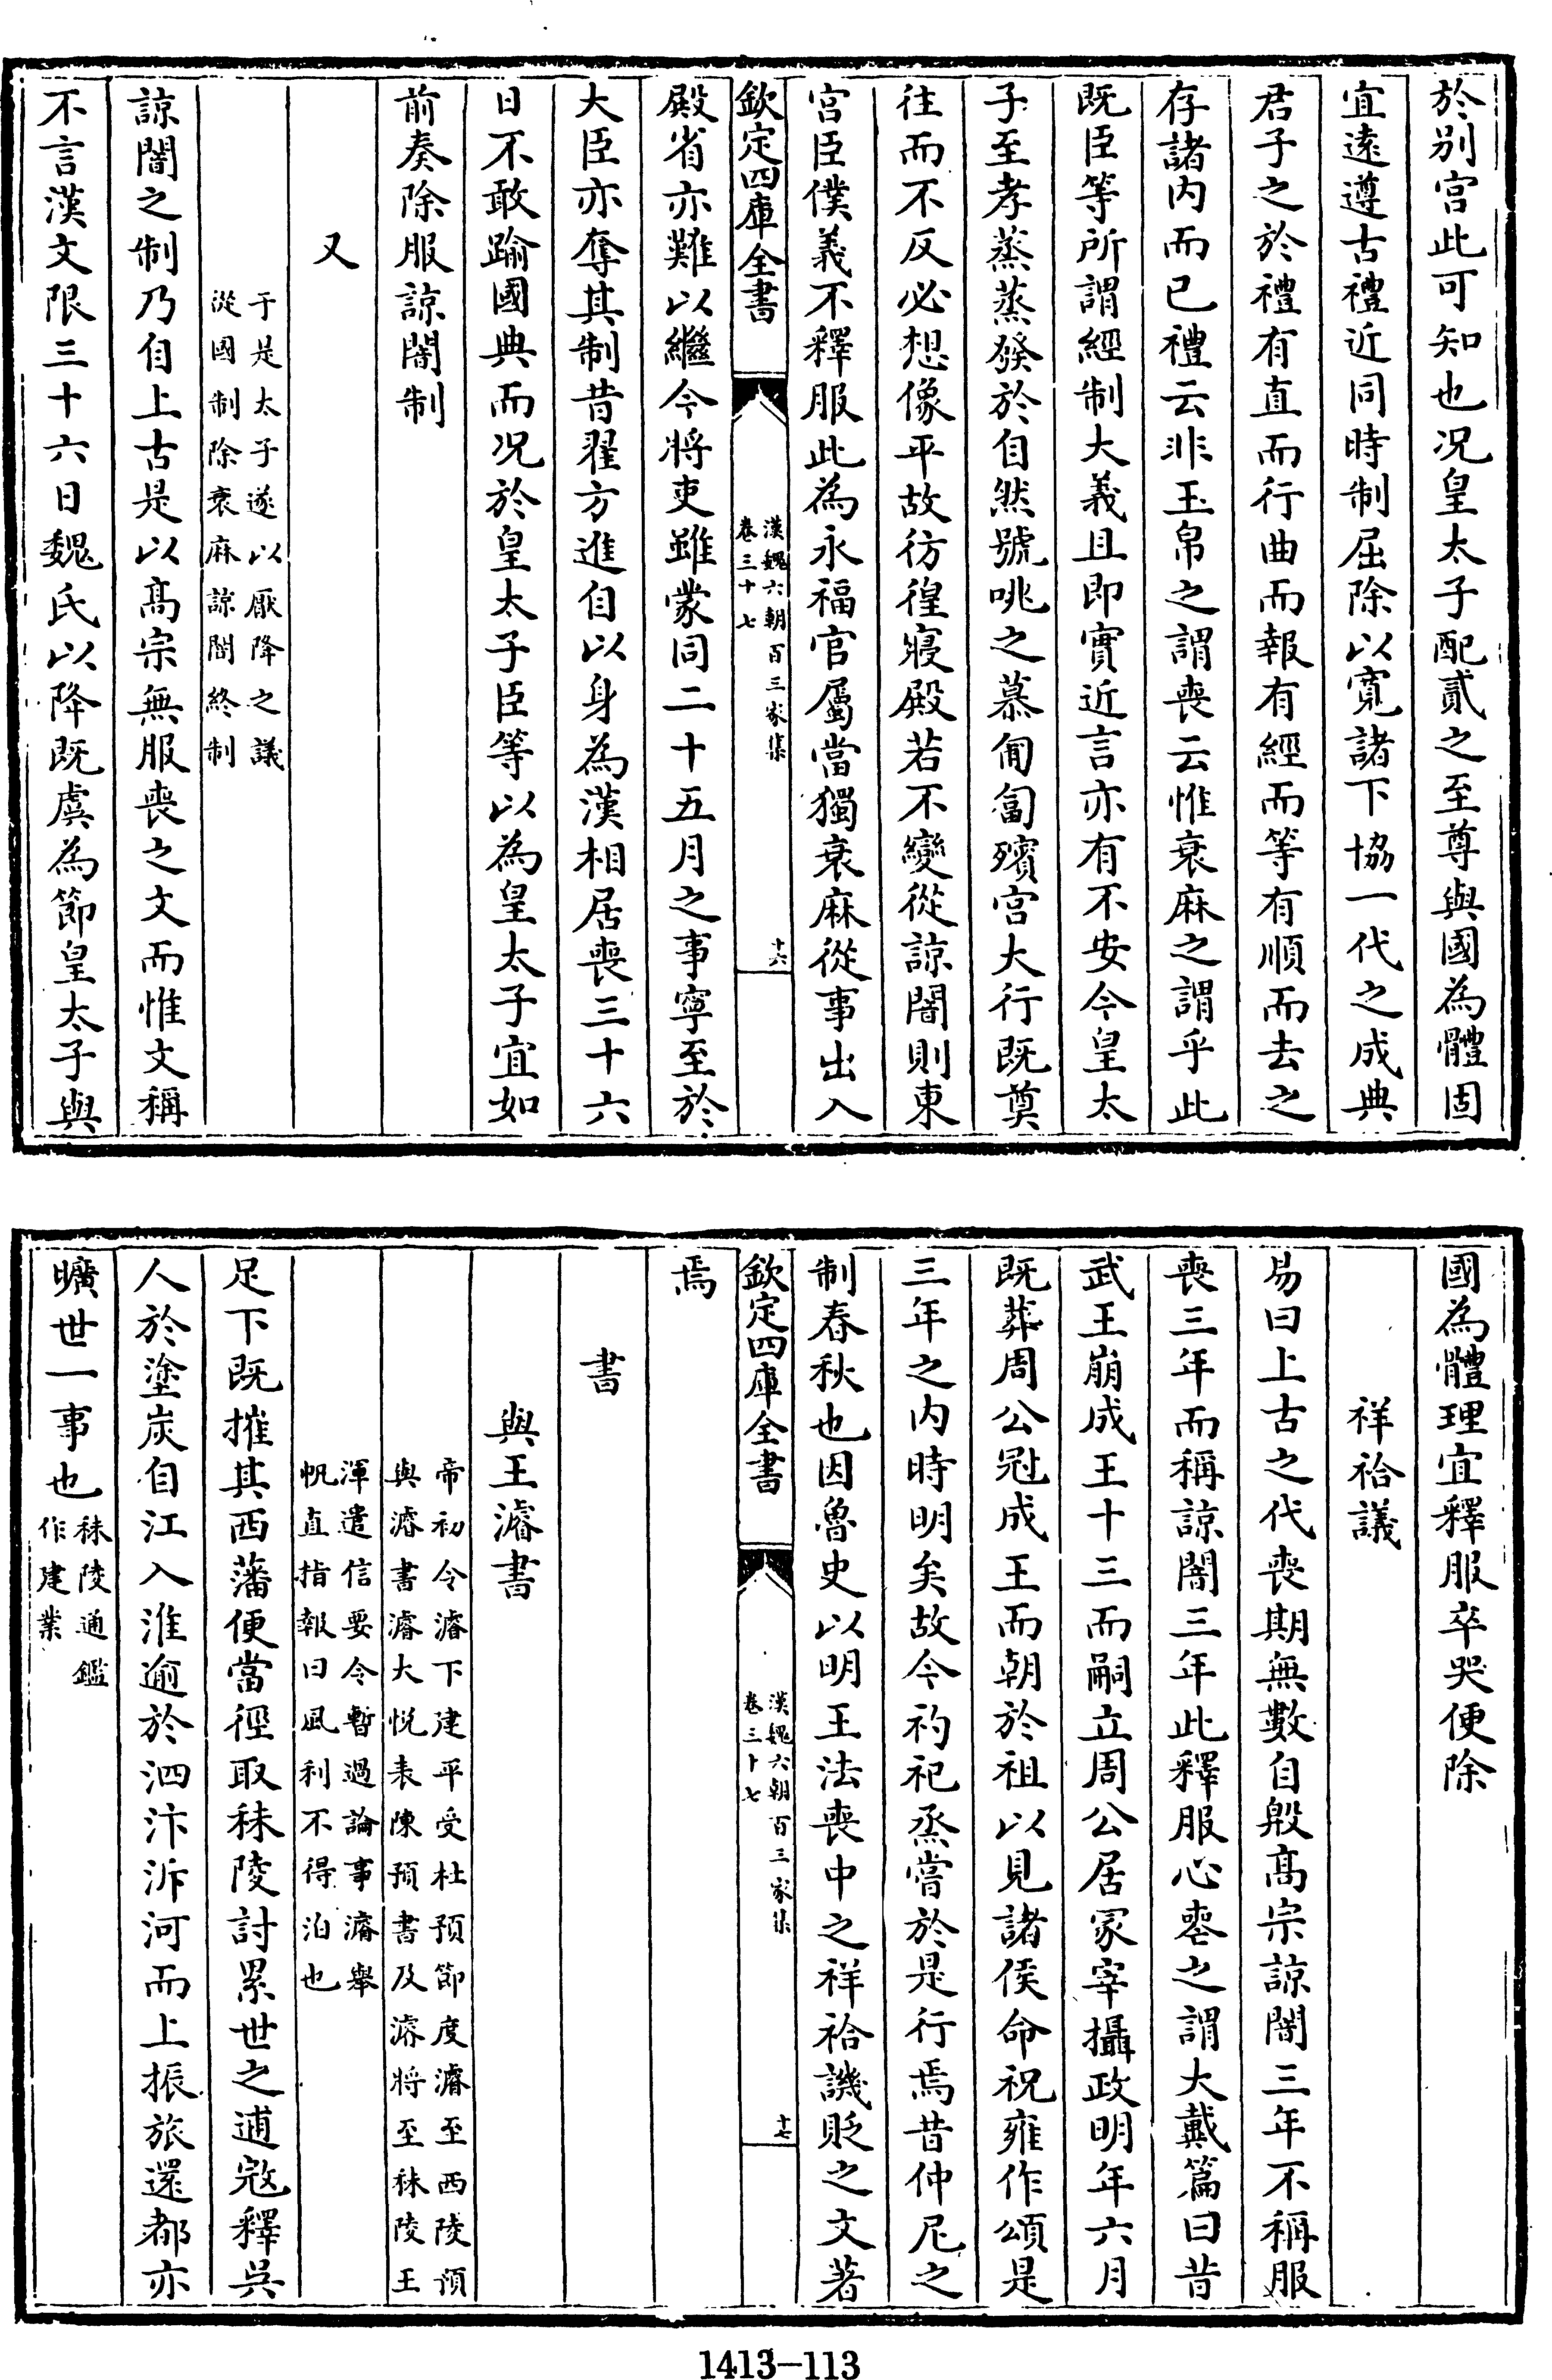 於别宫此可知也况皇太子配貳之至尊與國為體固
宜遠遵古禮近同時制屈除以寛諸下協一代之成典
君子之於禮有直而行曲而報有經而等有順而去之
存諸内而已禮云非玉帛之謂喪云惟衰麻之謂乎此
既臣等所謂經制大義且即實近言亦有不安今皇太
子至孝蒸蒸發於自然號咷之慕匍匐殯宫大行既奠
往而不反必想像平故彷徨寢殿若不變從諒闇則東
宫臣僕義不釋服此為永福官屬當獨衰麻從事出入
欽定四庫全書
漢魏六朝百三家集
卷三十七
十六
殿省亦難以繼今將吏雖蒙同二十五月之事寧至於
大臣亦奪其制昔翟方進自以身為漢相居喪三十六
日不敢踰國典而况於皇太子臣等以為皇太子宜如
前奏除服諒闇制
又
于是太子遂以厭降之議
從國制除衰麻諒闇終制
諒闇之制乃自上古是以髙宗無服喪之文而惟文稱
不言漢文限三十六日魏氏以降既虞為節皇太子與
國為體理宜釋服卒哭便除
祥祫議
易曰上古之代喪期無數自殷髙宗諒闇三年不稱服
喪三年而稱諒闇三年此釋服心喪之謂大戴篇曰昔
武王崩成王十三而嗣立周公居冢宰攝政明年六月
既葬周公冠成王而朝於祖以見諸侯命祝雍作頌是
三年之内時明矣故今礿祀烝嘗於是行焉昔仲尼之
制春秋也因魯史以明王法喪中之祥祫譏貶之文著
欽定四庫全書
漢魏六朝百三家集
卷三十七
十七
焉
書
與王濬書
帝初令濬下建平受杜預節度濬至西陵預
與濬書濬大悅表陳預書及濬將至秣陵王
渾遣信要令暫過論事濬舉
帆直指報曰風利不得泊也
足下既摧其西藩便當徑取秣陵討累世之逋寇釋吳
人於塗炭自江入淮逾於泗汴泝河而上振旅還都亦
曠世一事也
秣陵通鑑
作建業
1413-113